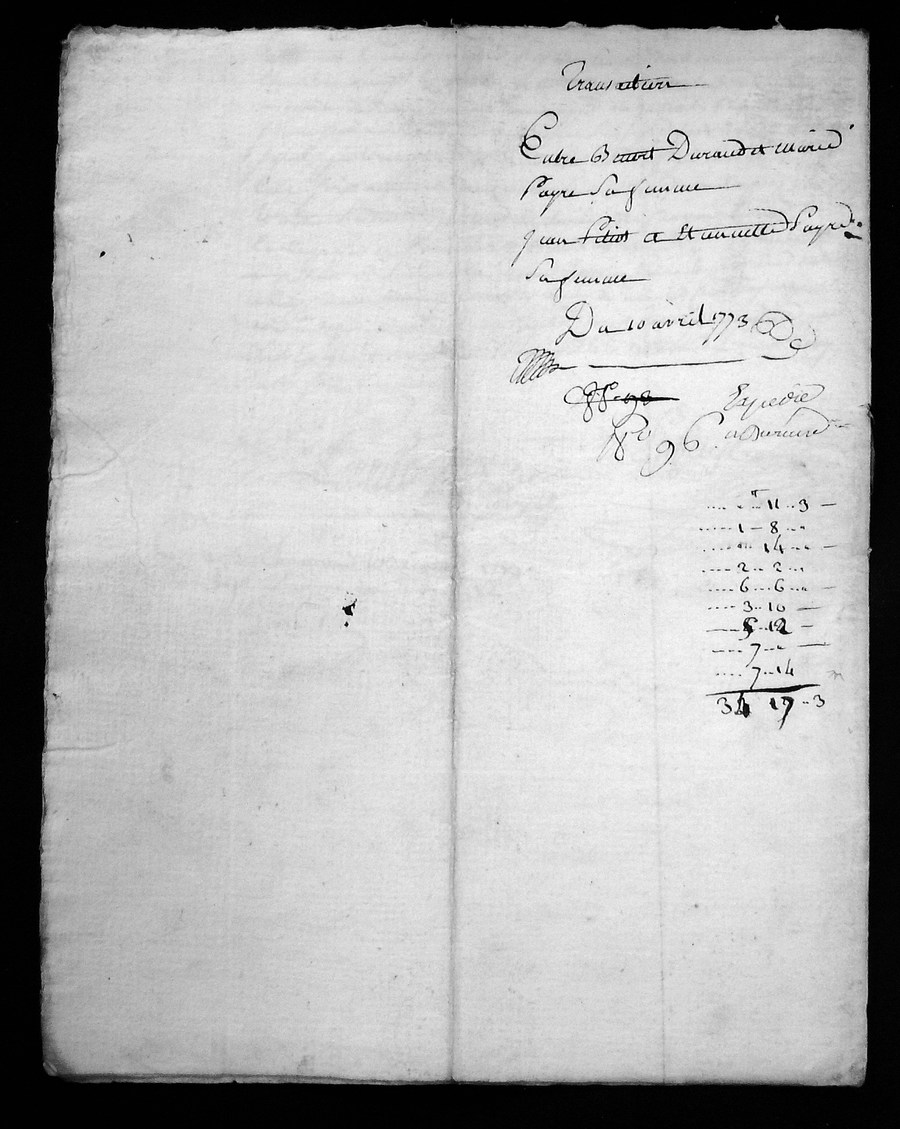 Transaction
Entre Benoit Durand et marie
Payre Sa femme
jean Pitiot et Etiennette Payre
Sa femme
Du 10 avril 1773
Expedié
N° 96 a Durand
11 - 3
1 - 8
14
2 - 2
6 - 6
3 - 10
5 - 12
7
7 - 14
34 17 - 3